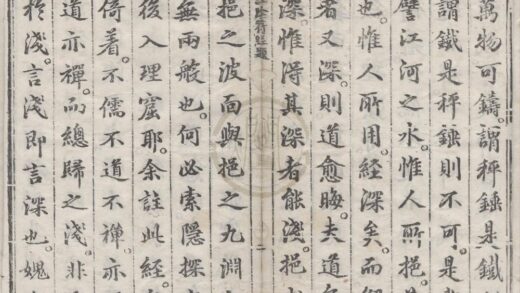 萬物可鑄。謂秤錘是鐵
謂鐵是秤錘則不可。是
譬江河之水。惟人所挹。
也。惟人所用。經深矣。而
者又深。則道愈晦。夫道
深。惟得其深者能淺。挹
陰符經題 二
挹之波面與挹之九淵
無兩般也。何必索隱探
後入理窟耶。余註此經
倚着。不儒不道不禪亦
道亦禪。而總歸之淺。非
於淺。言淺即言深也。媿